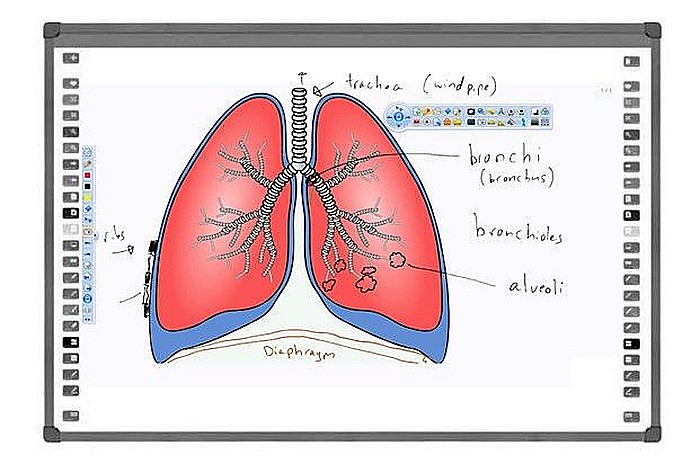 trachea (windpipe)
bronchi
(bronchus)
ribs
bronchioles
alveoli
Diaphragm